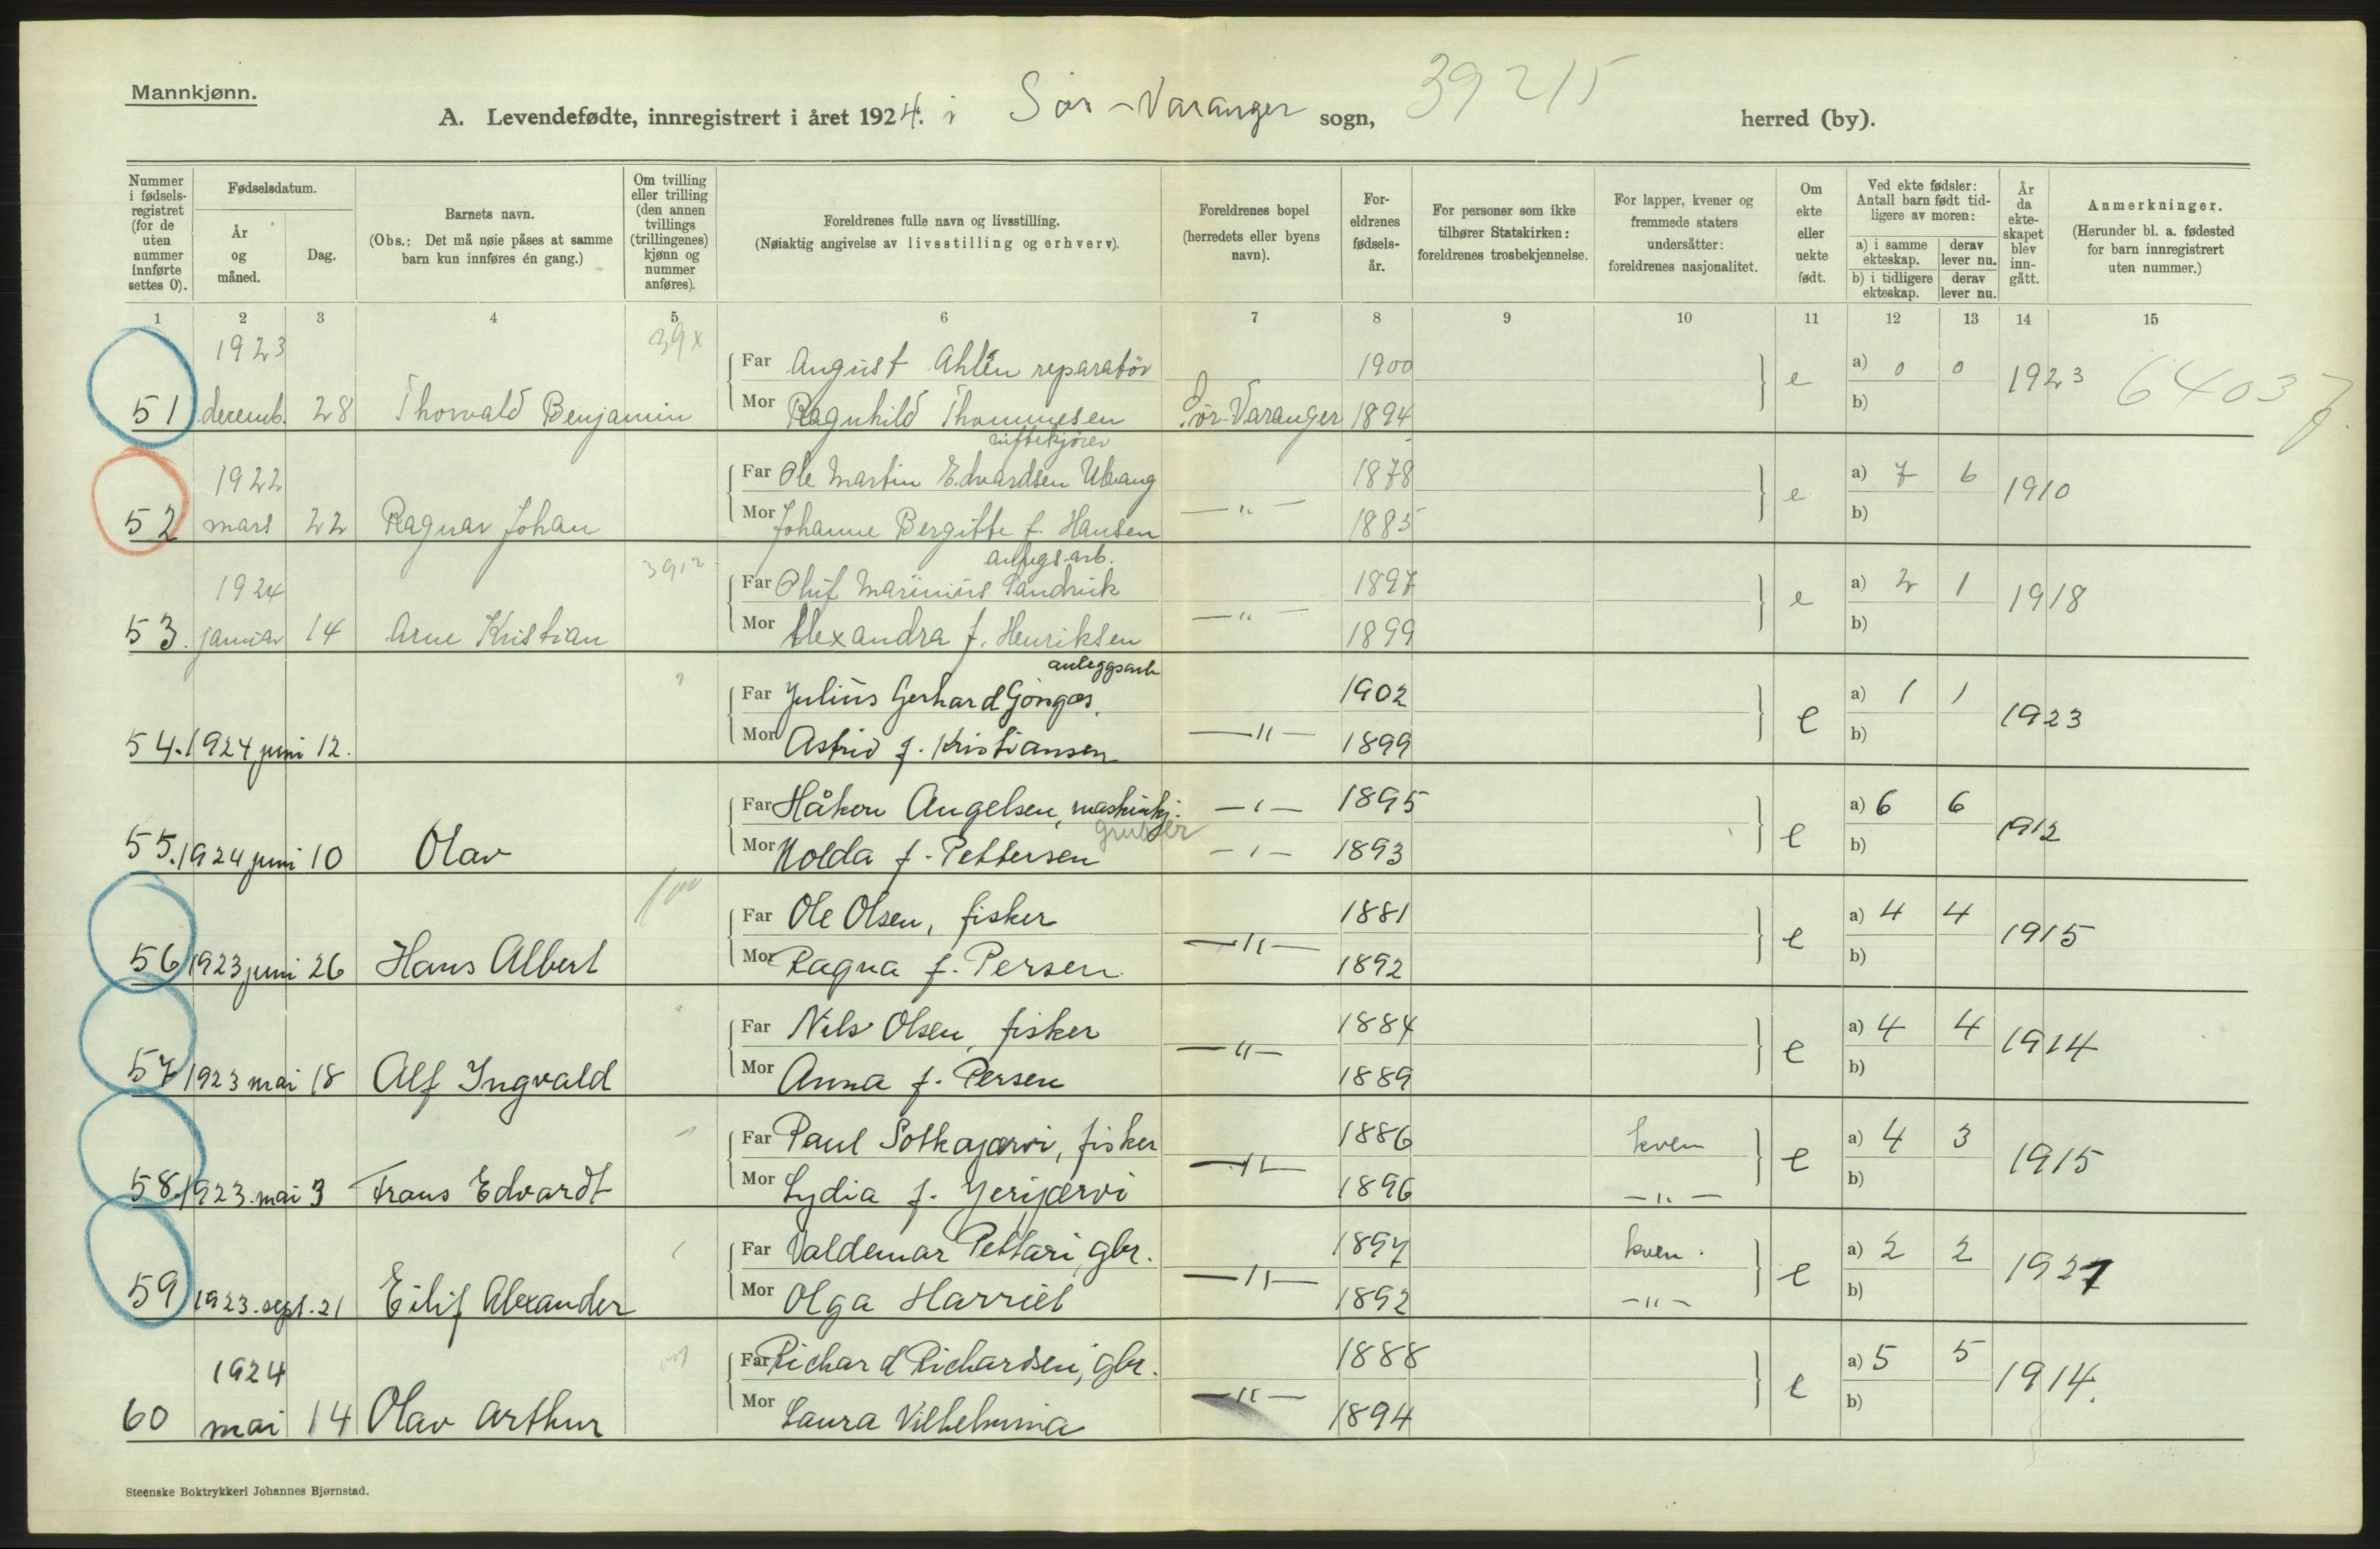 Mannkjønn.
A. Levendefødte, innregistrert i året 1924. i Sør-Varanger sogn, 39215 herred (by).
Nummer i fødsels-registret (for de uten nummer innførte settes 0).
Fødselsdatum.
År og måned.
Dag.
Barnets navn.
(Obs.: Det må nøie påses at samme barn kun innføres én gang.)
Om tvilling eller trilling (den annen tvillings (trillingenes) kjønn og nummer anføres).
Foreldrenes fulle navn og livsstilling.
(Nøiaktig angivelse av livsstilling og erhverv).
Foreldrenes bopel (herredets eller byens navn).
For-eldrenes fødsels-år.
For personer som ikke tilhører Statskirken: foreldrenes trosbekjennelse.
For lapper, kvener og fremmede staters undersåtter: foreldrenes nasjonalitet.
Om ekte eller uekte født.
Ved ekte fødsler: Antall barn født tid-ligere av moren:
a) i samme ekteskap.
derav lever nu.
b) i tidligere ekteskap.
derav lever nu.
År da ekte-skapet blev inn-gått.
Anmerkninger.
(Herunder bl. a. fødested for barn innregistrert uten nummer.)
1 2 3 4 5 6 7 8 9 10 11 12 13 14 15
1923 39x Far August Ahlén reparatör 1900 e a) 0 0 1923 6403
51 decemb. 28 Thorvald Benjamin Mor Ragnhild Thommesen Sør-Varanger 1894 b)
1922 Far Ole Martin Edvardsen Ulvang 1878 e a) 7 6 1910
52 mars 22 Ragnar Johan Mor Johanne Bergitte f. Hansen —"— 1885 b)
anlegs.arb.
1924 3912 Far Oluf Marinius Sandvik 1897 e a) 2 1 1918
53. januar 14 Arne Kristian Mor Alexandra f. Henriksen —"— 1899 b)
anleggsarb
Far Julius Gerhard Gjøngos. 1902 e a) 1 1 1923
54. 1924 juni 12. Mor Astrid f. Kristiansen —"— 1899 b)
Far Håkon Angelsen, maskinkj. —"— 1895 e a) 6 6 1912
gruber
55. 1924 juni 10 Olav Mor Holda f. Pettersen —"— 1893 b)
Far Ole Olsen, fisker 1881 e a) 4 4 1915
56 1923 juni 26 Hans Albert Mor Ragna f. Persen —"— 1892 b)
Far Nils Olsen, fisker 1884 e a) 4 4 1914
57 1923 mai 18 Alf Ingvald Mor Anna f. Persen —"— 1889 b)
Far Paul Sotkajærvi, fisker 1886 kven e a) 4 3 1915
58. 1923. mai 3 Frans Edvardt Mor Lydia f. Jerijærvi —"— 1896 —"— b)
Far Valdemar Pettari, gbr. 1897 kven. e a) 2 2 1921
59 1923. sept. 21 Eilif Alexander Mor Olga Harriet —"— 1892 —"— b)
1924 Far Richard Richardsen, gbr. 1888 e a) 5 5 1914.
60 mai 14 Olav Arthur Mor Laura Vilhelmina —"— 1894 b)
Steenske Boktrykkeri Johannes Bjørnstad.